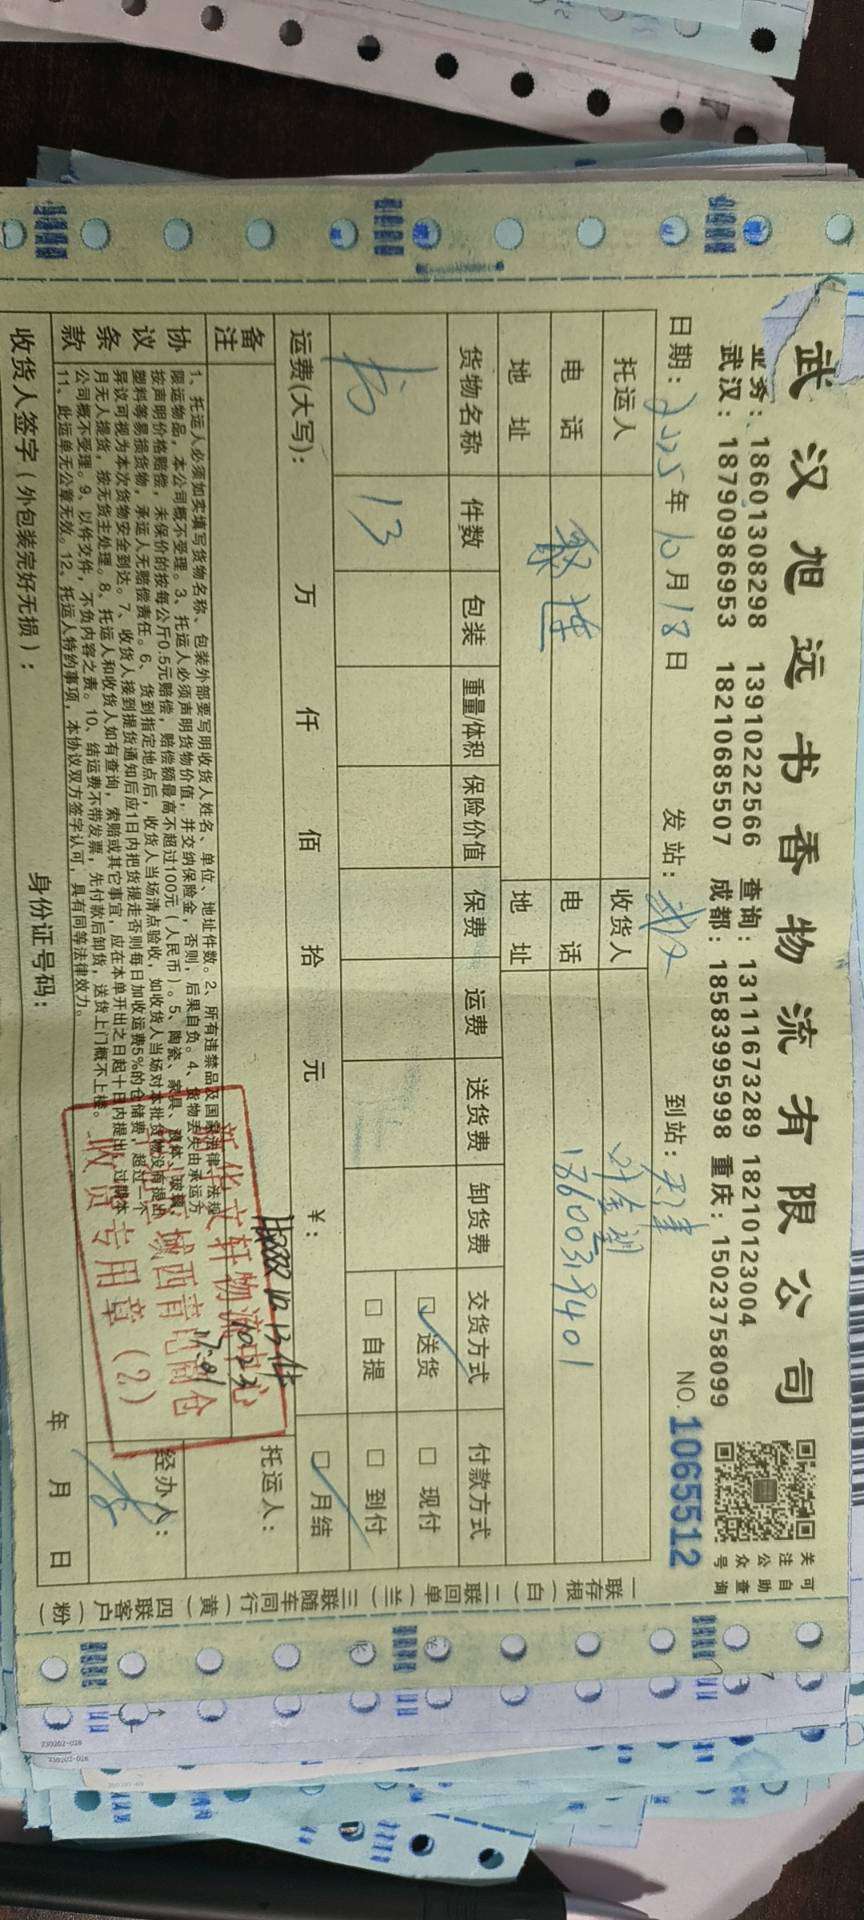 武汉旭远书香物流有限公司
业务：18601308298 13910222566 查询：13111673289 18210123004
武汉：18790986953 18210685507 成都：18583995998 重庆：15023758099
关注公众号
可自助查询
日期：2025年10月18日 发站：武汉 到站：天津 NO.1065512
托运人 收货人
电话 黎连 电话 18600319401
地址 地址
货物名称 件数 包装 重量/体积 保险价值 保费 运费 送货费 卸货费 交货方式 付款方式
书 13 送货 现付
自提 到付
运费(大写)： 万 仟 佰 拾 元 ¥： 月结
备注 托运人：
协议条款
1、托运人必须如实填写货物名称、包装外部要写明收货人姓名、单位、地址件数。2、所有违禁品及国家法律、法规
限运物品，本公司概不受理。3、托运人必须声明货物价值，并交纳保险金，否则，后果自负。4、货物丢失由承运方
按声明价格赔偿，未保价的按每公斤0.5元赔偿，赔偿额最高不超过100元（人民币）。5、陶瓷、家具、液体、玻璃、
塑料等易损货物，承运人无赔偿责任。6、货到指定地点后，收货人当场清点验收，如收货人当场对本批货物没有提出
异议可视为本次货物安全到达。7、收货人接到提货通知后应1日内把货提走否则每日加收运费5%的仓储费，超过一个
月无人提货，按无货主处理。8、托运人和收货人如有查询，索赔或其它事宜，应在本单开出之日起十日内提出，过期本
公司概不受理。9、以件交件，不负内容之责。10、结运费不带发票，先付款后卸货，送货上门概不上楼。
11、此运单无公章无效。12、托运人特约事项，本协议双方签字认可，具有同等法律效力。
经办人：
收货人签字（外包装完好无损）： 身份证号码： 年 月 日
新华文轩物流中心
城西青电商仓
收货专用章（2）
一联存根（白）二联回单（兰）三联随车同行（黄）四联客户（粉）